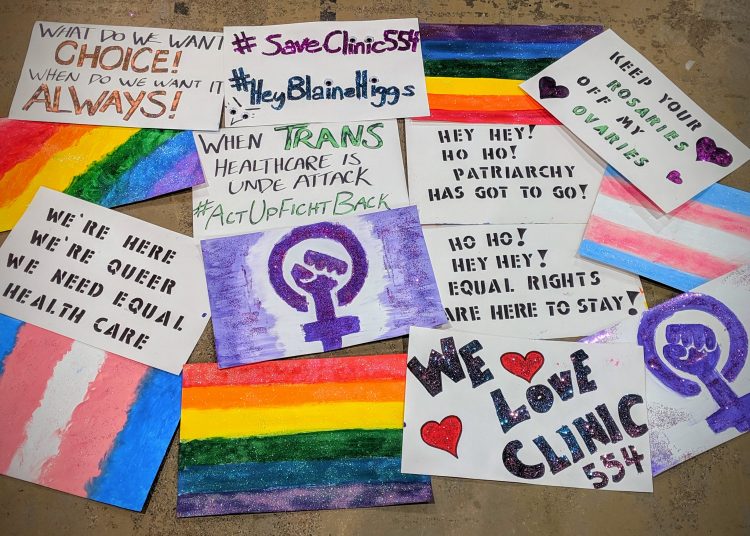 WHAT DO WE WANT
CHOICE!
WHEN DO WE WANT IT
ALWAYS!
#SaveClinic554
#HeyBlaineHiggs
KEEP YOUR
ROSARIES
OFF MY
OVARIES
WHEN TRANS
HEALTHCARE IS
UNDE ATTACK
#ACTUPFIGHTBACK
HEY HEY!
HO HO!
PATRIARCHY
HAS GOT TO GO!
WE'RE HERE
WE'RE QUEER
WE NEED EQUAL
HEALTH CARE
HO HO!
HEY HEY!
EQUAL RIGHTS
ARE HERE TO STAY!
WE
LOVE
CLINIC
554